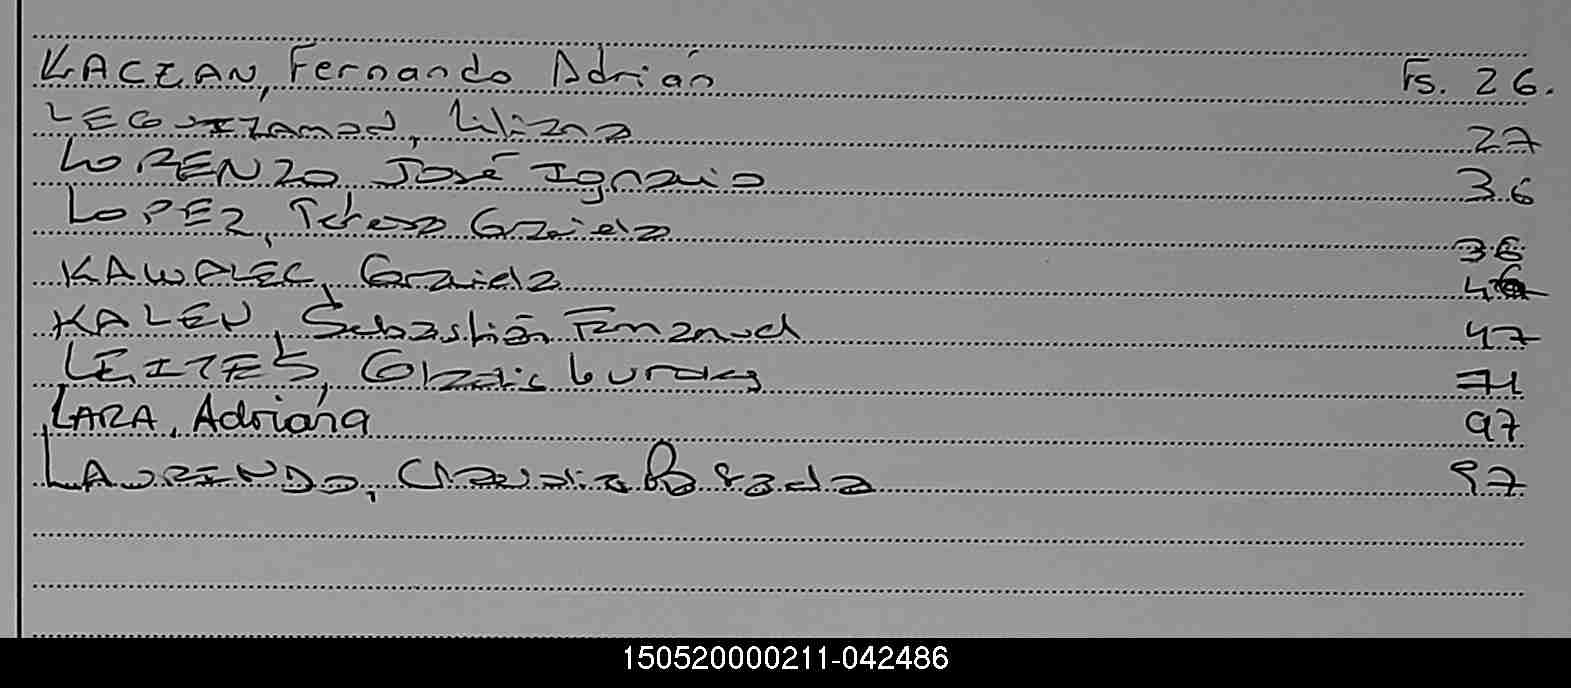 KACZAN, Fernando Adrián Fs. 26.
LEGUIZAMON, Liliana 27
LORENZO, José Ignacio 36
LOPEZ, Teresa Graciela 36
KAWALEC, Graciela
KALEN, Sebastián Emanuel 47
LEITES, Gladis Lurdes 71
LARA, Adriana 97
LAURENDO, Claudia 97
150520000211-042486